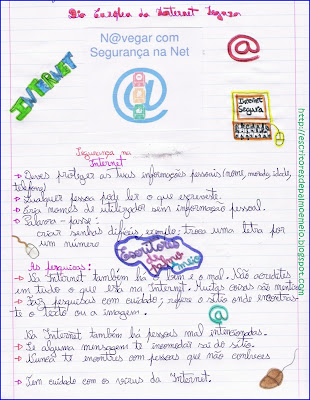 Dia Europeu da Internet Segura
N@vegar com
Segurança na Net
INTERNET
Internet
Segura
Segurança na
Internet
→ Deves proteger as tuas informações pessoais (nome, morada, idade,
telefone)
→ Qualquer pessoa pode ler o que escreveste.
→ Cria nomes de utilizador sem informação pessoal.
→ Palavra-passe:
criar senhas difíceis, exemplo: troca uma letra por
um número
Escritores
de
palmo
e meio
As pesquisas:
→ Na Internet também há o bem e o mal. Não acredites
em tudo o que está na Internet. Muitas coisas são mentira
→ Faz pesquisas com cuidado; refere o sítio onde encontras-
te o texto ou a imagem.
Na Internet também há pessoas mal intencionadas.
→ Se alguma mensagem te incomodar sai do sítio.
→ Nunca te encontres com pessoas que não conheces
→ Tem cuidado com os vírus da Internet.
http://escritoresdepalmoemeio.blogspot.com